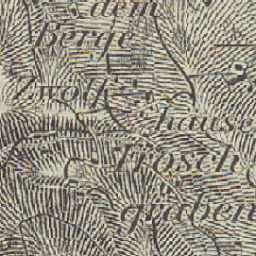 dem
Bergl
Zwölf
hause
Frosch
graben